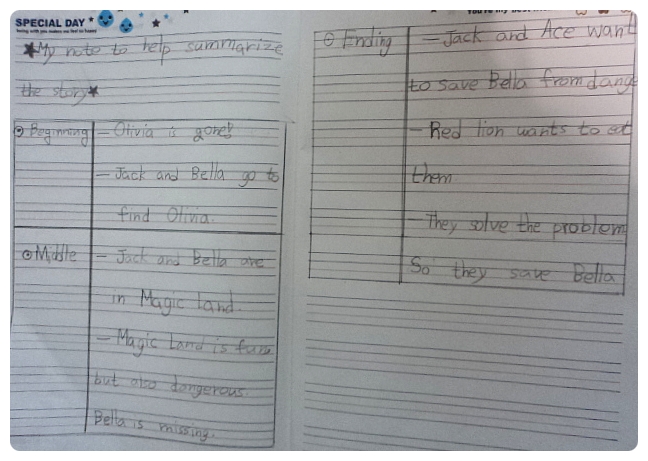 SPECIAL DAY
being with you makes me feel so happy
★My note to help summarize
the story★
⊙ Beginning
- Olivia is gone!
- Jack and Bella go to
find Olivia.
⊙ Middle
- Jack and Bella are
in Magic Land.
- Magic Land is fun
but also dangerous.
Bella is missing.
⊙ Ending
- Jack and Ace want
to save Bella from dang
- Red lion wants to eat
them
- They solve the problem
So they save Bella